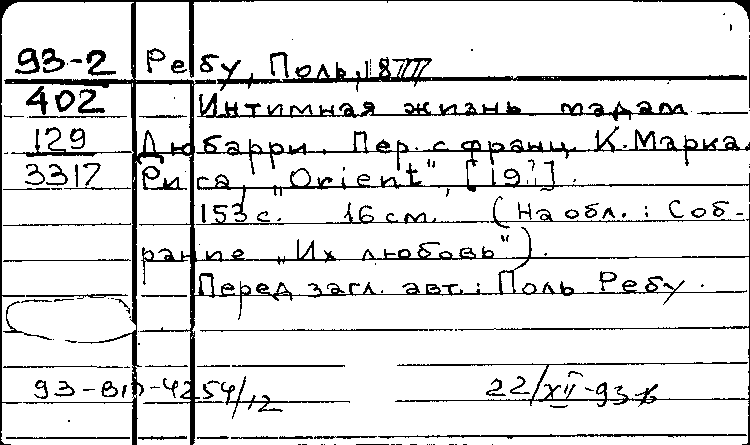 93-2 Ребу, Поль, 1877
402 Интимная жизнь мадам
129 Дюбарри. Пер. с франц. К. Марка.
3317 Рига, "Orient", [19?].
153 с. 16 см. (На обл.: Соб-
рание "Их любовь").
Перед загл. авт.: Поль Ребу.
93-8 -4254/12 22/XII-93